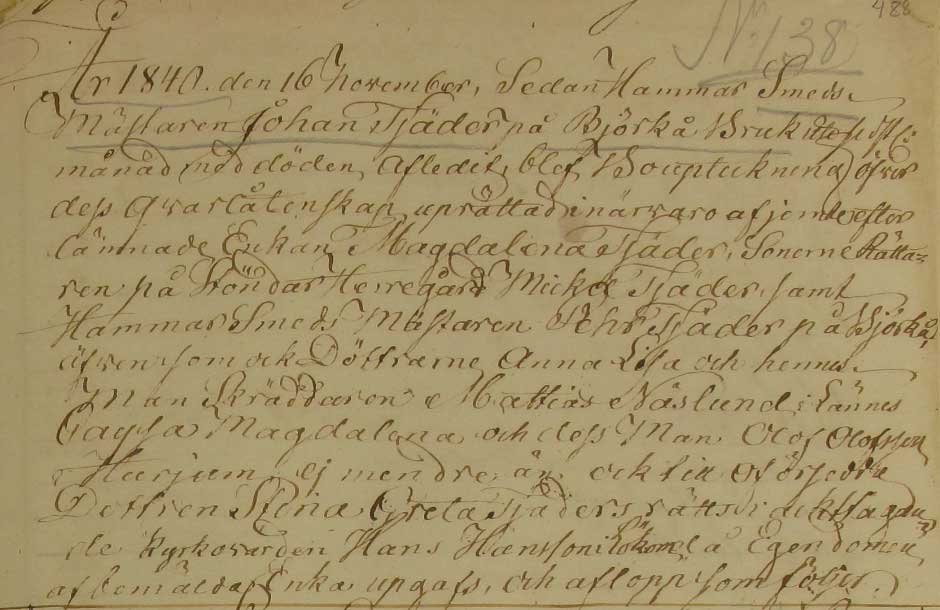 488
No 138
År 1840. den 16 November, Sedan Hammar Smeds
Mästaren Johan Tjäder på Björkå Bruk
månad med döden Afledit, blef Bouptekning öfver
dess Qvarlåtenskap upprättad i närvaro af jemte efter
lämnade Enkan Magdalena Tjäder, Sönerne Rätta=
ren på Herregård Mickel Tjäder, samt
Hammar Smeds Mästaren Pehr Tjäder på Björkå,
äfven som ock Döttrarne Anna Lisa och hennes
Man Skräddaren Mattias Näslund i Lännes
Cajsa Magdalena och dess Man Olof Olofsson
ej mendre än ock till Oförsedda
Dottren Stina Greta Tjäders rätts iackttagan=
de Kyrkovarden Hans Hansson i Egendomen
af bemälda Enka upgafs, och aflopp som följer.